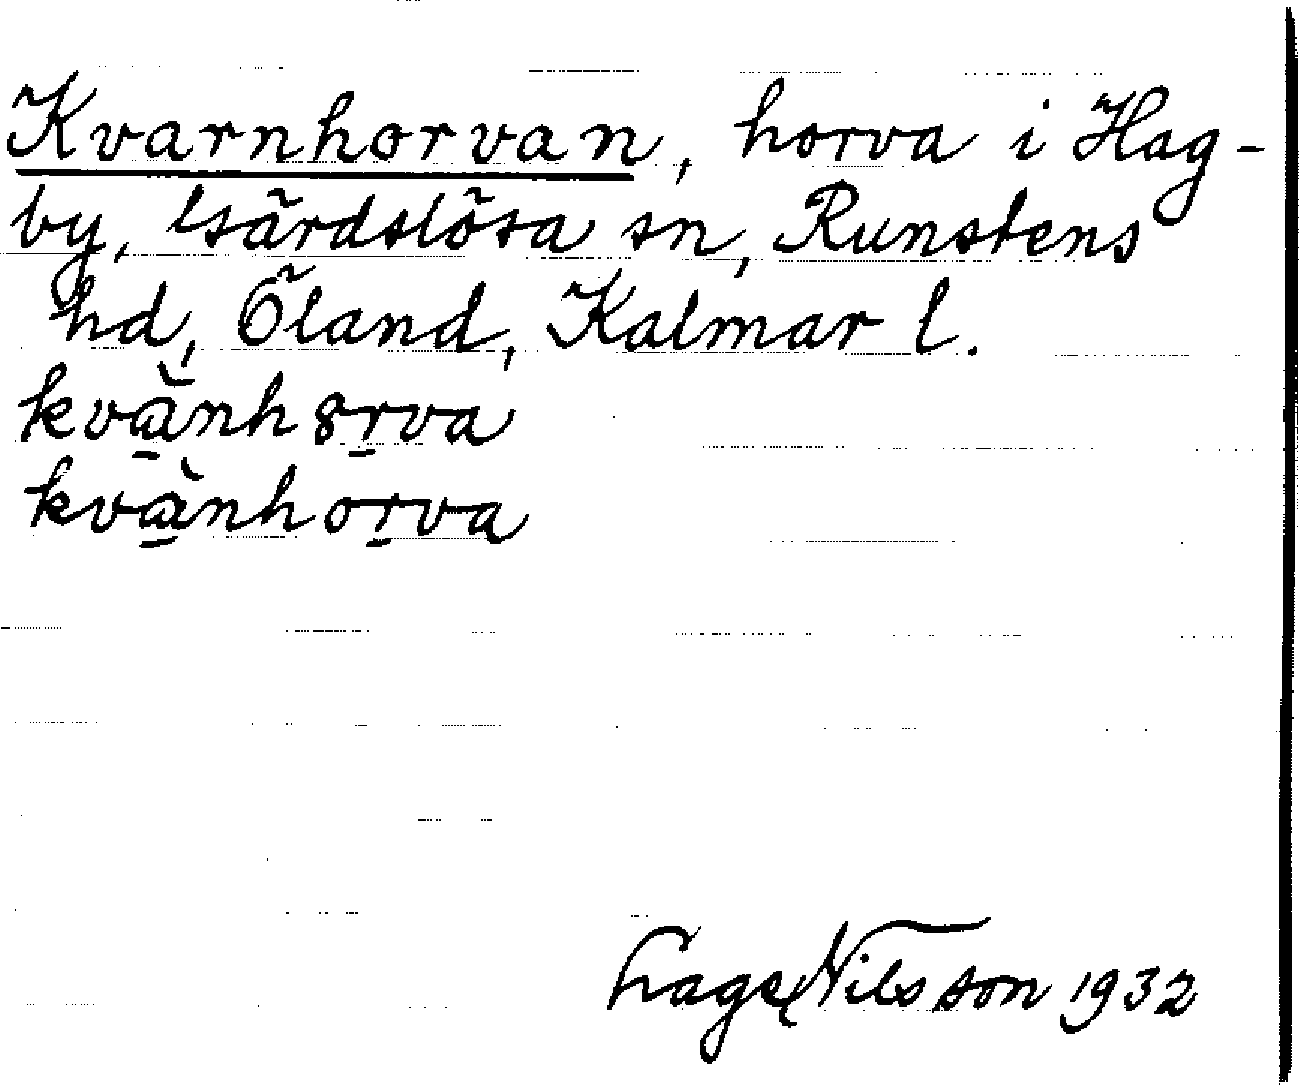 Kvarnhorvan, horva i Hag-
by, Gärdslösa sn, Runstens
hd, Öland, Kalmar l.
kvành8rva
kvànhorva
Lage Nilsson 1932